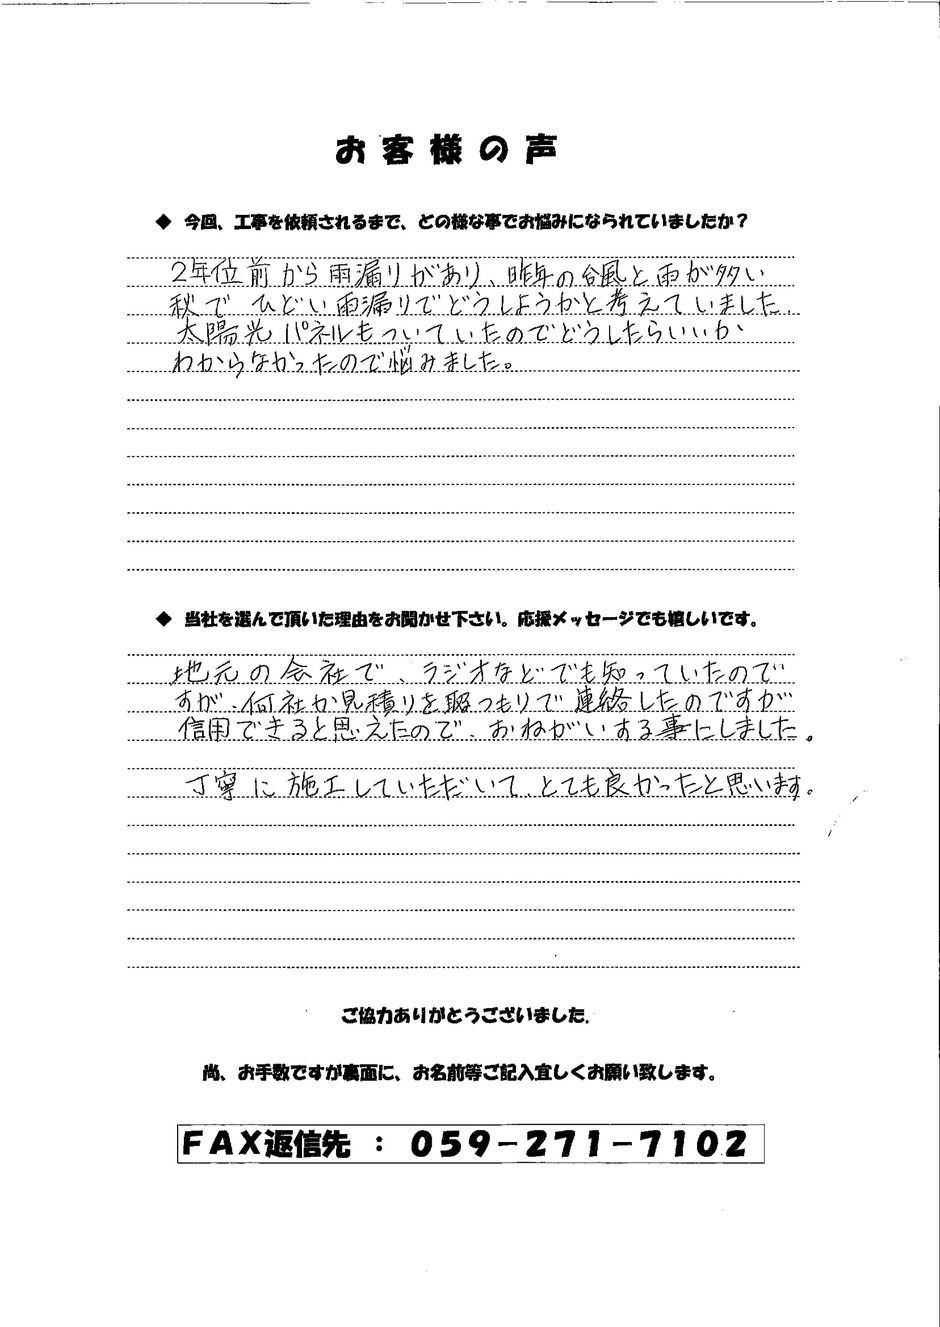 お客様の声
◆ 今回、工事を依頼されるまで、どの様な事でお悩みになられていましたか？
2年位前から雨漏りがあり、昨年の台風と雨が多い
秋で ひどい雨漏りでどうしようかと考えていました、
太陽光パネルもついていたのでどうしたらいいか
わからなかったので悩みました。
◆ 当社を選んで頂いた理由をお聞かせ下さい。応援メッセージでも嬉しいです。
地元の会社で、ラジオなどでも知っていたので
すが、何社か見積りを取るつもりで連絡したのですが
信用できると思えたので、おねがいする事にしました。
丁寧に施工していただいて、とても良かったと思います。
ご協力ありがとうございました。
尚、お手数ですが裏面に、お名前等ご記入宜しくお願い致します。
FAX返信先 ： 059-271-7102